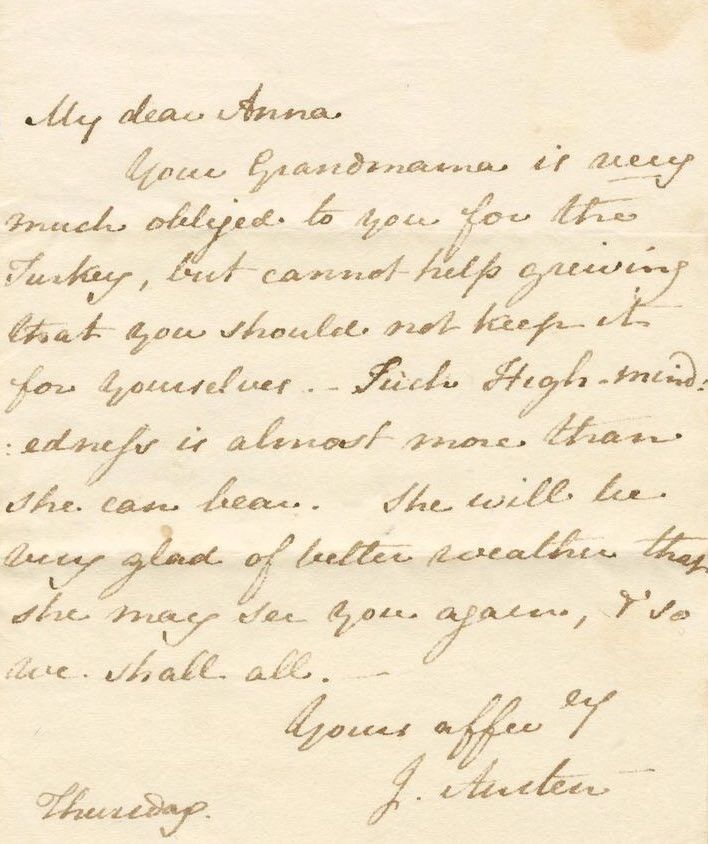 My dear Anna
Your Grandmama is very
much obliged to you for the
Turkey, but cannot help greiving
that you should not keep it
for Yourselves. - Such High-mind:
:edness is almost more than
she can bear. She will be
very glad of better weather that
she may see you again, & so
we shall all. -
Yours affec ely
J. Austen
Thursday.